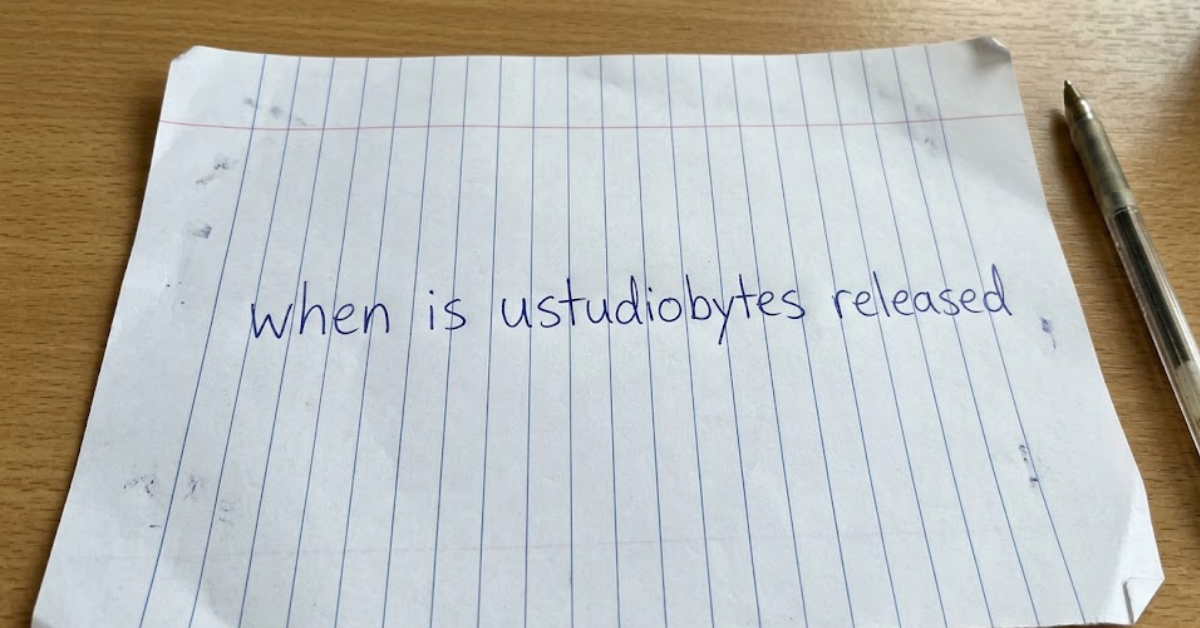 when is ustudiobytes released